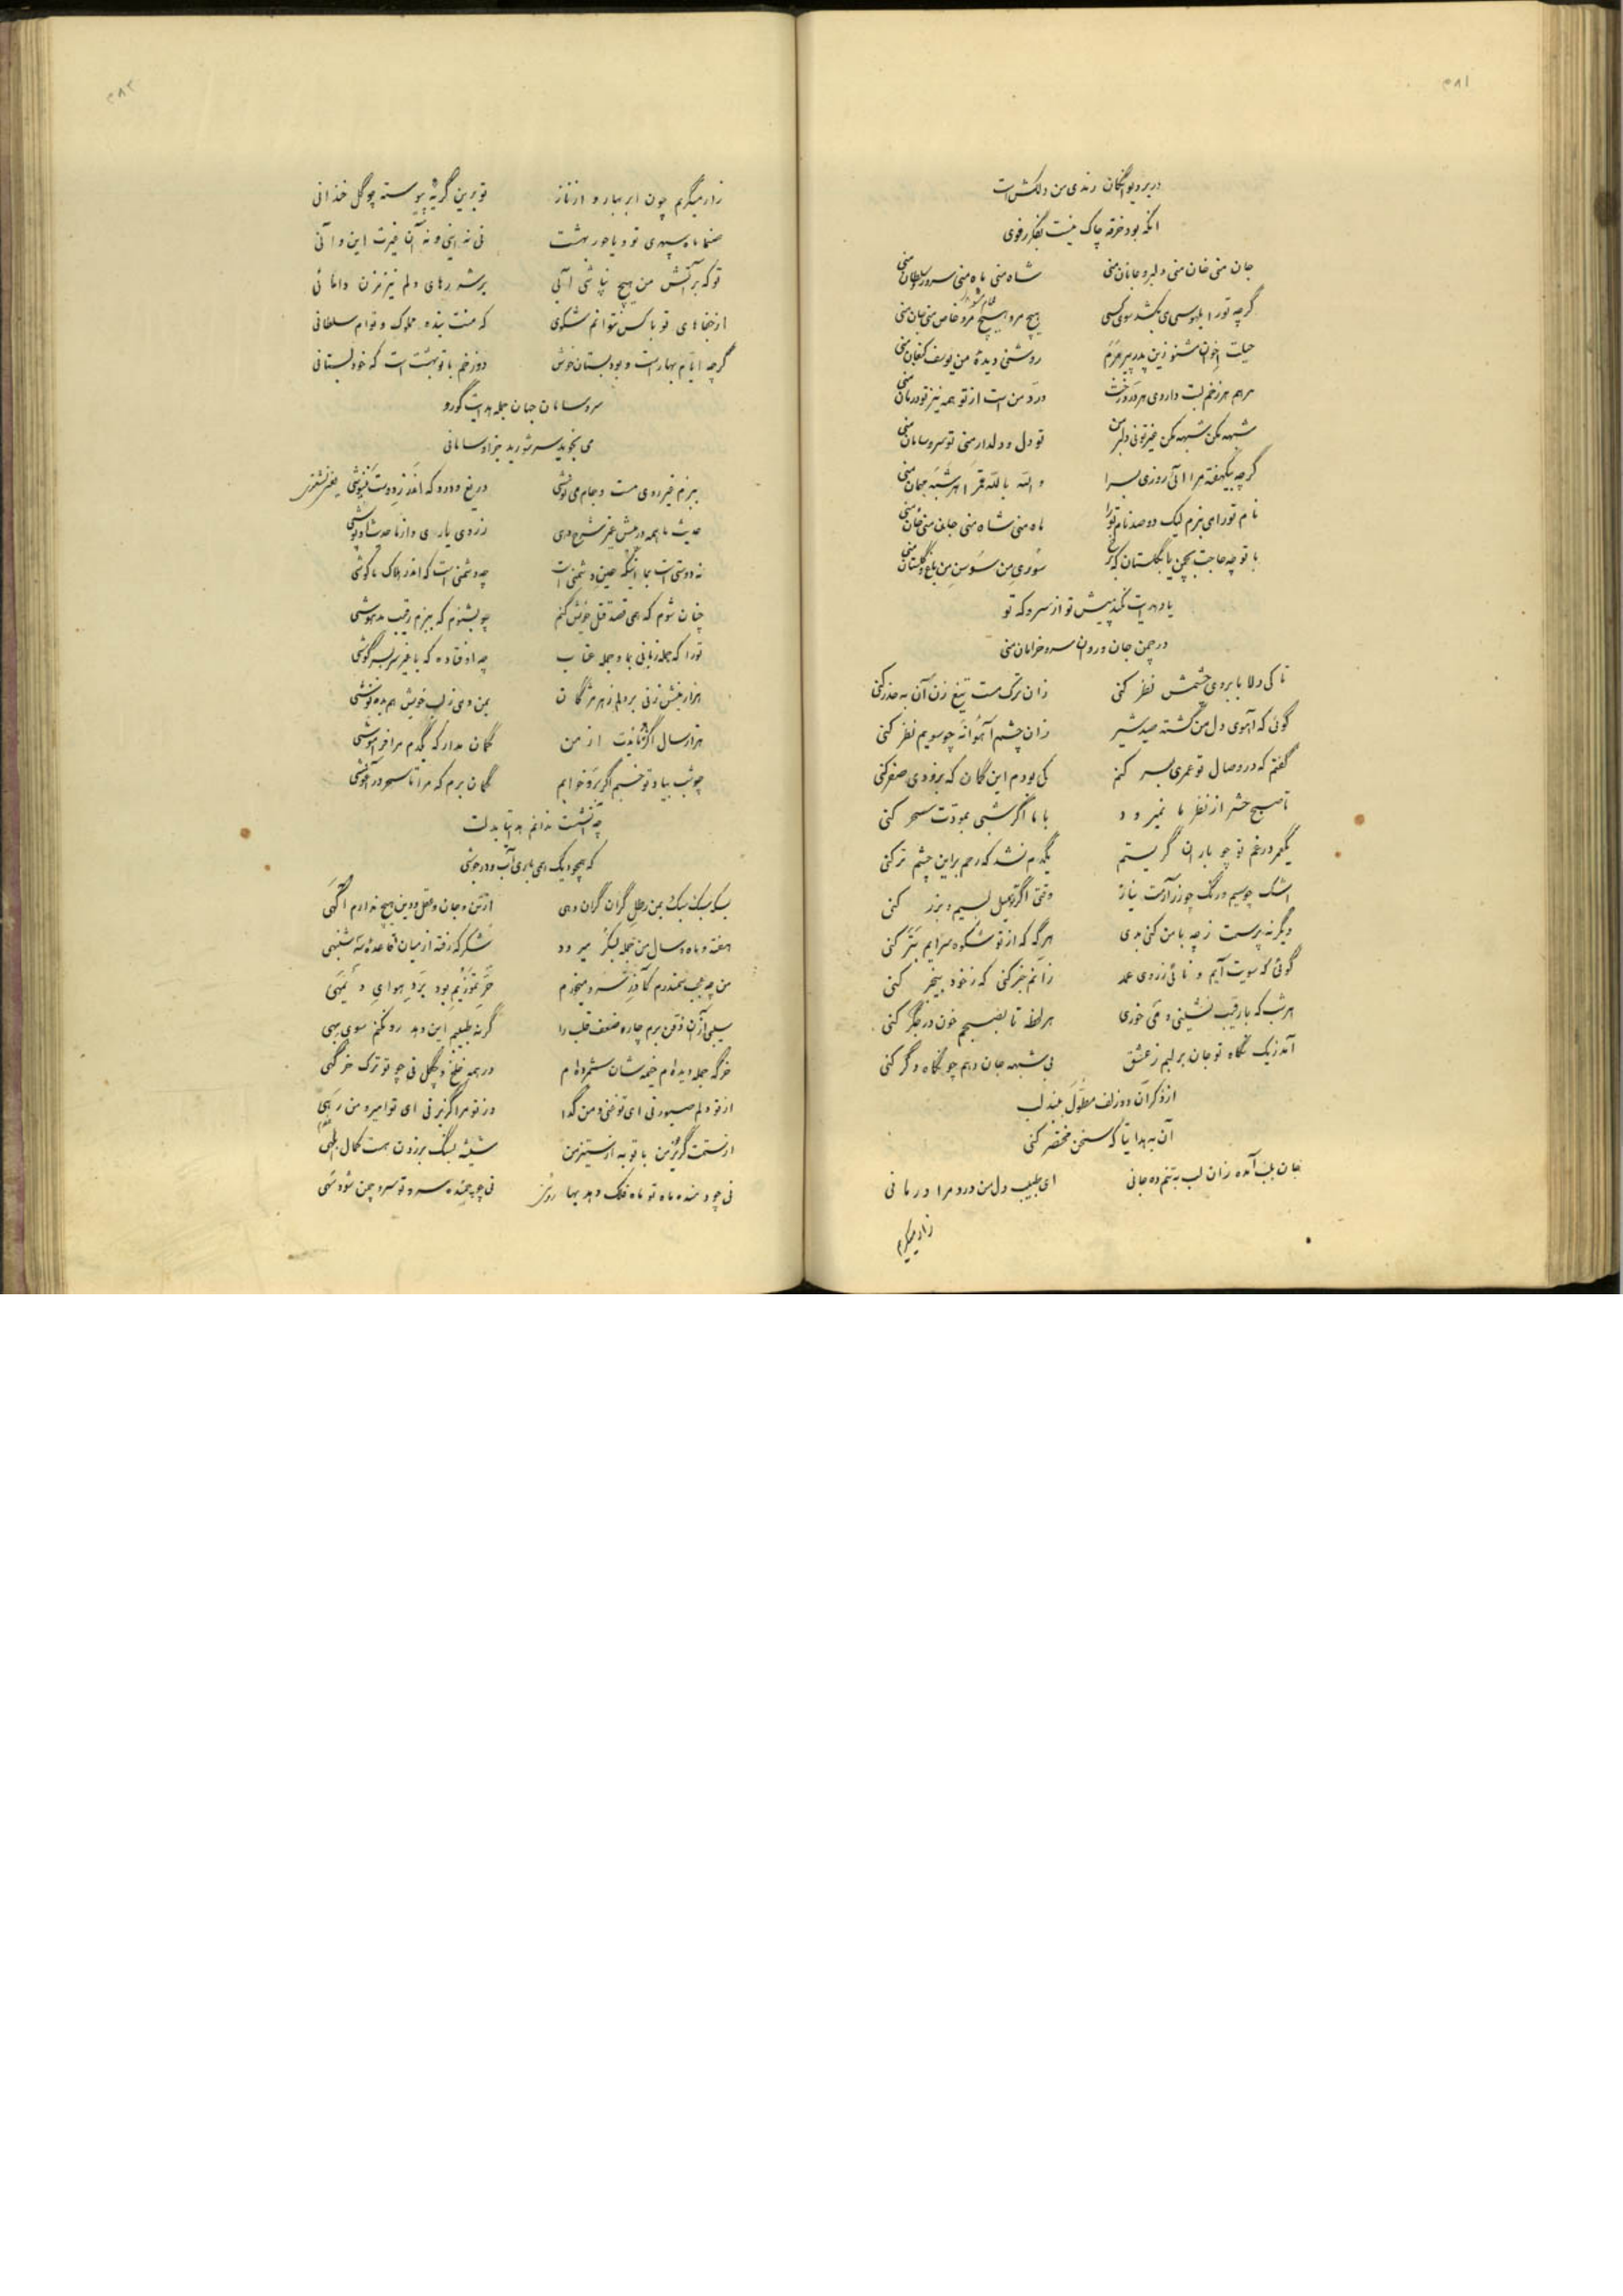 ۳۸۱
در بر دیوانگان رندی من دلکش است
آنکه بود خرقه چاک نیست بفکر رفوی
جان منی خان منی دلبر و جانان منی شاه منی ماه منی سرور و سلطان منی
گرچه تو را بلهوسی می‌کشد سوی کسی هیچ مرو هیچ مرو خاص منی جان منی
حیلت اخوان مشنو زین پدر پیر مرم روشنی دیدهٔ من یوسف کنعان منی
مرهم هر زخم لبت داروی هر درد رخت درد من است از تو همه نیز تو درمان منی
شبهه مکن شبهه مکن غیر تو نی دلبر من تو دل و دلدار منی تو سر و سامان منی
گرچه بیکهفته مرا آئی روزی بسرا والله بالله قمرا هر شبه مهمان منی
نام تو را می‌نبرم لیک دو صد نام تو را ماه منی شاه منی جان منی خان منی
با تو چه حاجت بچمن یا بگلستان که سوری من سوسن من باغ و گلستان منی
یاد هدایت نکند پیش تو از سرو که تو
در چمن جان و روان سرو خرامان منی
تا کی دلا بابروی چشمش نظر کنی زان ترک مست تیغ زن آن به حذر کنی
گوئی که آهوی دل من گشته صید شیر زان چشم آهوانه چو سویم نظر کنی
گفتم که در وصال تو عمری بسر کنم کی بودم این گمان که بزودی صفر کنی
تا صبح حشر از نظر ما نمیرود با ما اگر شبی بمودت سحر کنی
یکعمر در غم تو چو باران گریستم یکدم نشد که رحم براین چشم تر کنی
اشک چو سیم و رنگ چو زر آرمت نیاز وقتی اگر تو میل بسیم و بزر کنی
دیگر نپرسمت ز چه با من کنی بدی هرگه که از تو شکوه سرایم بتر کنی
گوئی که سویت آیم و نائی ز روی عمد زانم خبر کنی که ز خود بیخبر کنی
هر شب که با رقیب نشینی و می خوری هر لحظه تا بصبحم خون در جگر کنی
آمد زیک نگاه تو جان بر لبم ز عشق بی شبهه جان دهم چو نگاه دگر کنی
از ذکر آن دو زلف مطول ببند لب
آن به هدایتا که سخن مختصر کنی
جان بلب آمده زان لب به تنم ده جانی ای طبیب دل من درد مرا درمانی
زار میگریم
۳۸۲
زار میگریم چون ابر بهار و از ناز تو برین گریه پیوسته چو گل خندانی
صنما ماه سپهری تو و یا حور بهشت نی نه اینی و نه آن غیرت این و آنی
تو که بر آتش من هیچ نپاشی آبی بر شررهای دلم نیز مزن دامانی
از جفاهای تو با کس نتوانم شکوی که منت بنده مملوک و توام سلطانی
گرچه ایام بهار است و بود بستان خوش دوزخم با تو بهشت است که خود بستانی
سر و سامان جهان جمله هدایت گو رو
می نجوید سر شورید بجز او سامانی
ببزم غیر روی مست و جام می نوشی دریغ و درد که اندرز دوست ننیوشی
حدیث ما همه در پیش غیر شرح دهی ز روی یاری و از ما حدیث او پوشی
نه دوستی است بما اینکه عین دشمنی است چه دشمنی است که اندر هلاک ما کوشی
چنان شوم که همی قصد قتل خویش کنم چو بشنوم که ببزم رقیب مدهوشی
تو را که جمله زبانی بما و جمله عتاب چه اوفتاده که با غیر سربسر گوشی
هزار نیش زنی بر دلم ز هر مژگان بمن دمی ز لب خویش هم بده نوشی
هزار سال اگر نایدت از من گمان مدار که یکدم مرا فراموشی
چو شب بیاد تو خسبم اگر برو خوابم گمان برم که مرا تا سحر در آغوشی
چه آتشست ندانم هدایتا بدلت
که همچو دیک همی باری آب و در جوشی
سبک سبک سبک بمن رطل گران گران دهی از تن و جان و عقل و دین هیچ ندارم آگهی
هفته و ماه و سال من جمله بسکر میرود شکر که رفته از میان قاعدهٔ سه شنبهی
من چه عجب سمندرم کاذر سرد میخورم حر تموزیم بود برد هوای دیمهی
سیبی از آن ذقن برم چاره ضعف قلب را گرنه طبیبم این دهد رو نکنم سوی بهی
خرگه جمله دیده‌ام خیمه شان شمرده‌ام در همه خلخ و چگل نی چو تو ترک خرگهی
از تو دلم صبور نی ای تو غنی و من گدا وز تو مرا گزیر نی ای تو امیر و من رهی
از ستمت گریز من با تو به از ستیز من شیشه بسنگ بر زدن هست کمال ابلهی
نی چو رخنده ماه تو ماه فلک دهد بها نی چو چمنده سرو تو سرو چمن شود سهی